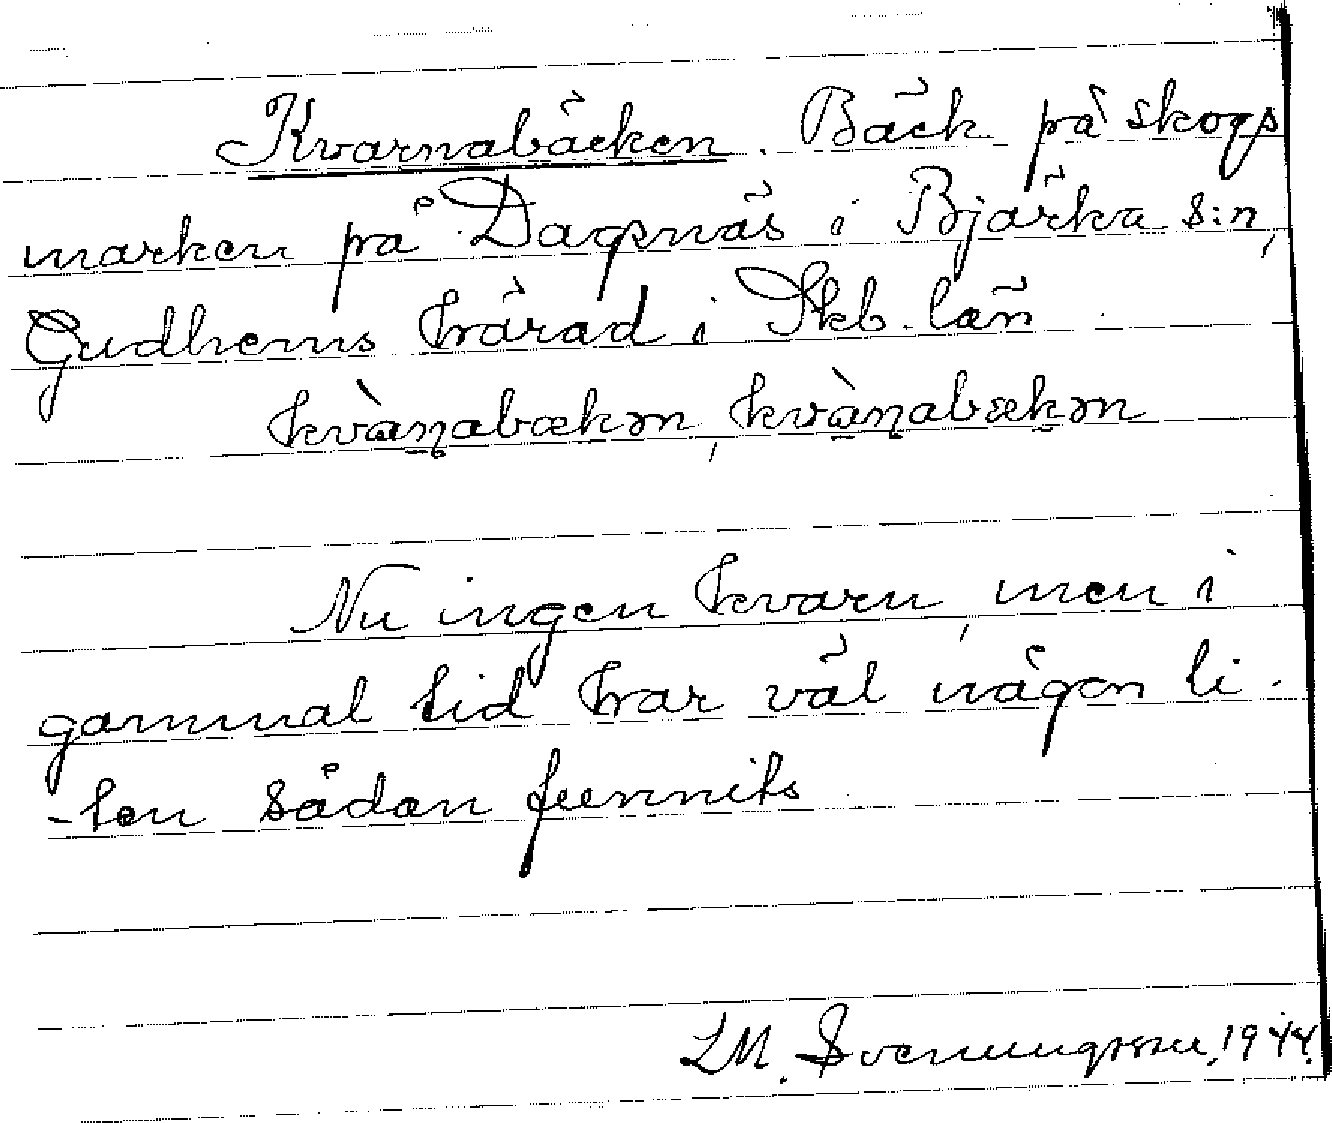 Kvarnabäcken. Bäck på skogs
marken på Dagsnäs i Bjärka s:n,
Gudhems härad i Skb. län
kvàṇabækən, kvàṇabækən
Nu ingen kvarn, men i
gammal tid har väl någon li-
-ten sådan funnits
LM. Svenungsson, 1944.